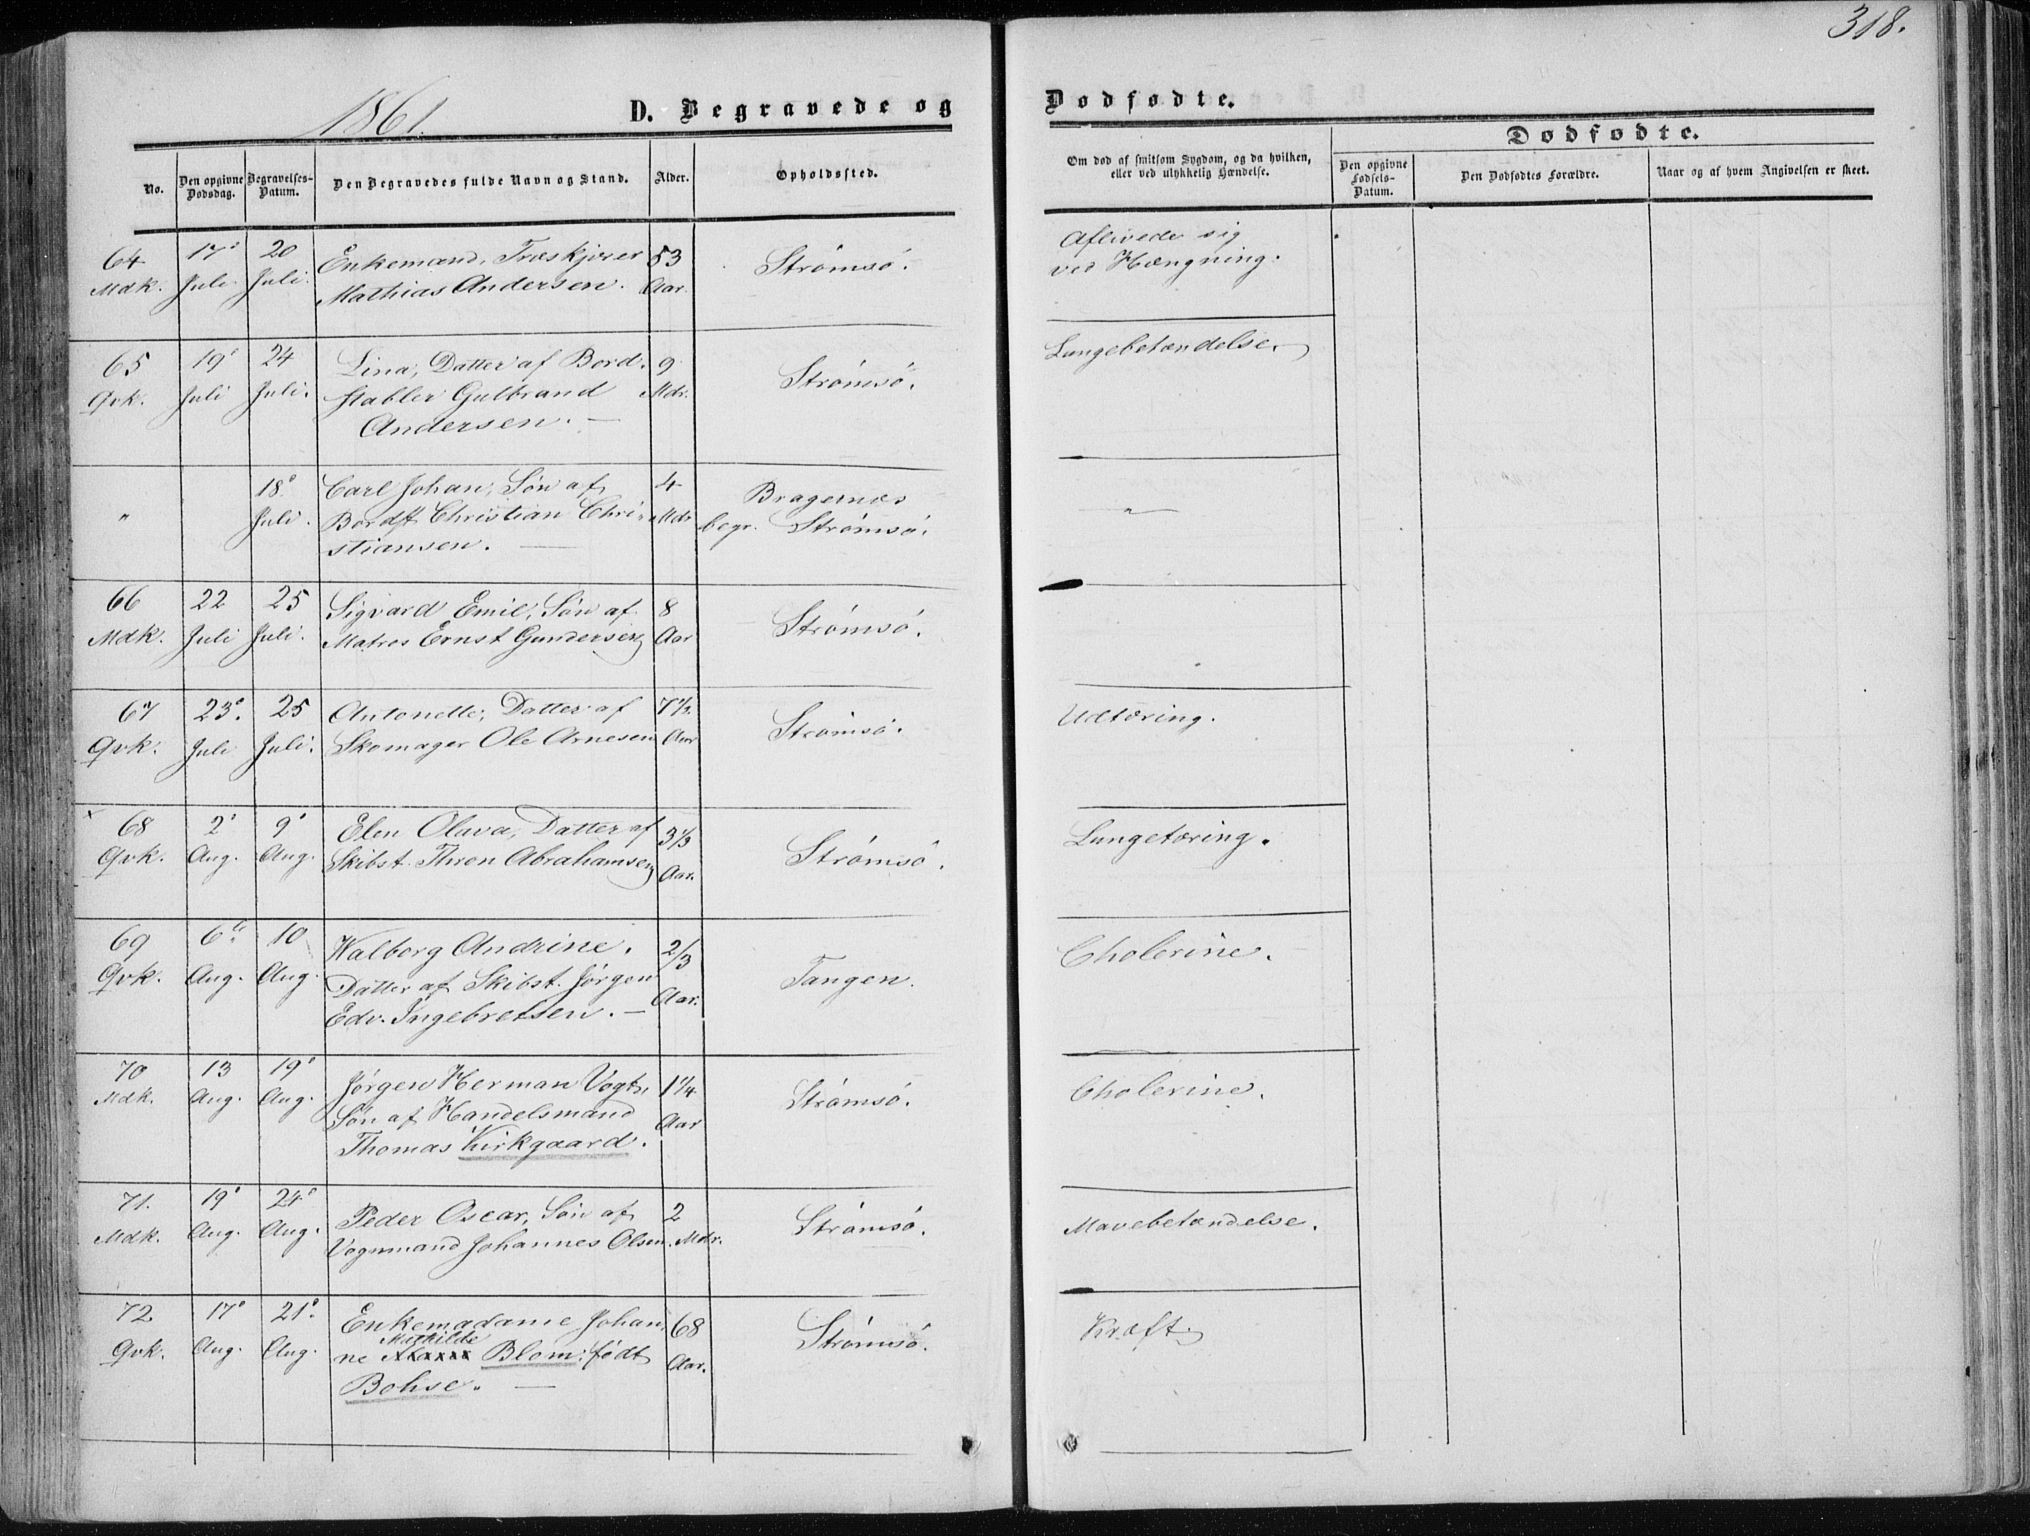 318.
1861.
D. Begravede og
Dødfødte.
Dødfødte.
No.
Den opgivne Dødsdag.
Begravelses-Datum.
Den Begravedes fulde Navn og Stand.
Alder.
Opholdssted.
Om død af smitsom Sygdom, og da hvilken,
eller ved ulykkelig Hændelse.
Den opgivne Fødsels-Datum.
Den Dødfødtes Forældre.
Naar og af hvem Angivelsen er skeet.
64 17 20 Enkemand, Træskjærer 53 Strømsö. Aflivede sig
Mdk. Juli Juli. Mathias Andersen. Aar. ved Hængning.
65 19 24 Lina, Datter af Bord- 9 Strømsö. Lungebetændelse.
Qvk. Juli Juli. stabler Gulbrand Mdr.
Andersen. —
" 18 Carl Johan, Søn af 4 Bragernæs "
Juli. Bordst. Christian Chri- Mdr. begr. Strømsö.
stiansen. —
66 22 25 Sigvard Emil, Søn af 8 Strømsö.
Mdk. Juli Juli. Matros Ernst Gundersen Aar
67 23. 25 Antonette, Datter af 7½ Strømsö. Udtæring.
Qvk. Juli Juli. Skomager Ole Arnesen Aar
x 68 2 9 Elen Olava, Datter af 3⅓ Strømsö. Lungetæring.
Qvk. Aug. Aug. Skibst. Thron Abrahamsen Aar.
69 6. 10 Walborg Andrine. 2/3 Tangen. Cholerine.
Qvk. Aug. Aug. Datter af Skibst. Jørgen Aar.
Edv. Ingebretsen. —
70 13 19 Jørgen Herman Vogt, 1¼ Strømsö. Cholerine.
Mdk. Aug. Aug. Søn af Handelsmand Aar
Thomas Kirkgaard.
71. 19 24 Peder Oscar, Søn af 2 Strømsö. Mavebetændelse.
Mdk. Aug. Aug. Vognmand Johannes Olsen. Mdr.
72 17 21. Enkemadame Johan- 68 Strømsö. Kræft.
Mathilde
Qvk. Aug. Aug. ne Blom, født Aar.
Bohse. —